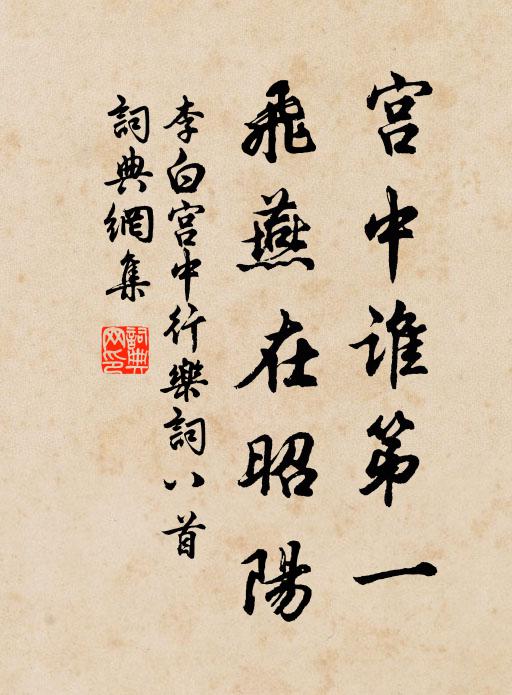 宫中谁第一
飛燕在昭陽
李白宫中行樂詞八首
詞典網集
詞典網印